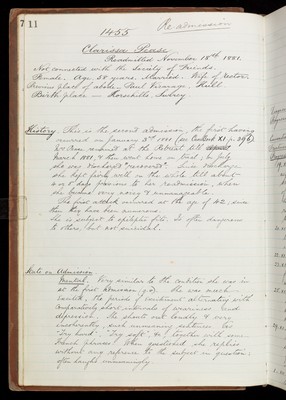 7 11
Re admission
1455
Clarissa Pease
Readmitted November 18th 1881.
Not connected with the Society of Friends.
Female. Age 58 years. Married. Wife of Rector.
Previous place of abode, Paul Vicarage. Hull
Birth place — Horsehills Surrey.
History. This is the second admission, the first having
occurred on January 3rd 1881 (see Casebook XI p. 296)
& Mrs remained at the Retreat till
March 1881, & then went home on trial, in July
she was discharged "recovered".
she kept fairly well on the whole till about
4 or 5 days previous to her readmission, when
she became very noisy & unmanageable.
The first attack occurred at the age of 42, since
then they have been numerous.
She is subject to epileptic fits. Is often dangerous
to others, but not suicidal.
State on Admission
Mental. Very similar to the condition she was in
at the first Admission (q.v.). She was much
excited, the periods of excitement alternating with
comparatively short intervals of weariness and
depression. She shouts out loudly & very
incoherently, such unmeaning sentences as
"Try hard", "Try soft" &c, together with some
French phrases. When questioned she replies
without any reference to the subject in question:
often laughs unmeaningly